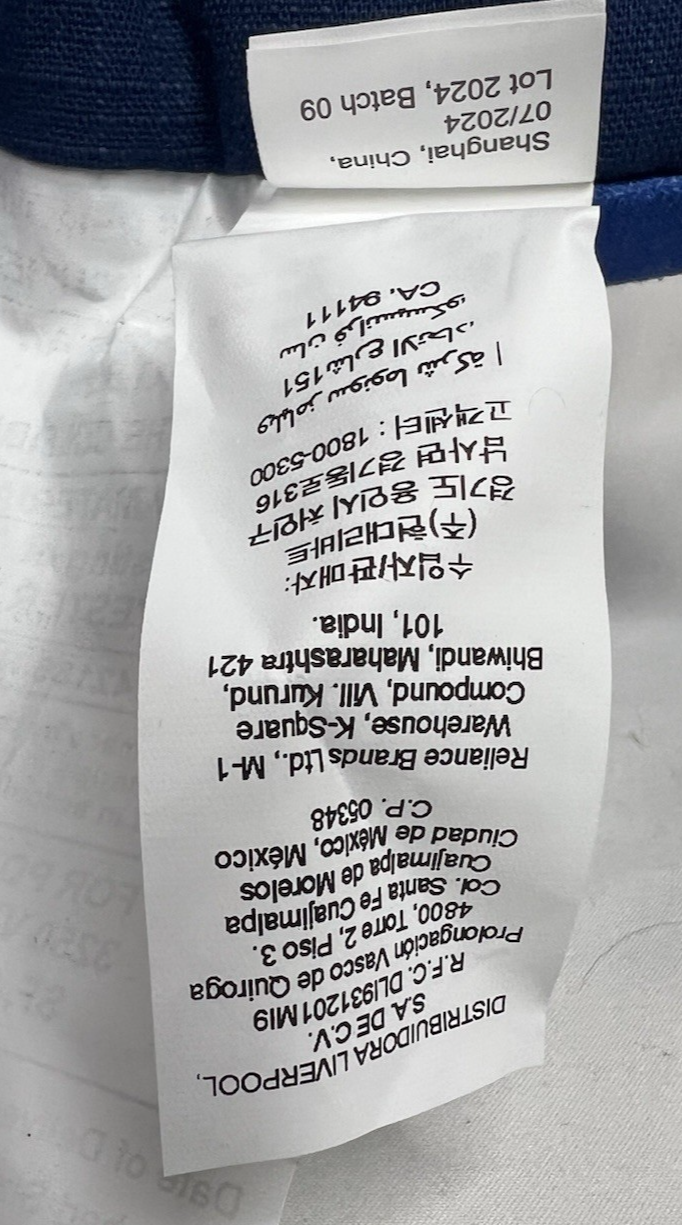 DISTRIBUIDORA LIVERPOOL,
S.A. DE C.V.
R.F.C. DLI931201MI9
Prolongación Vasco de Quiroga
4800, Torre 2, Piso 3.
Col. Santa Fe Cuajimalpa
Cuajimalpa de Morelos
Ciudad de México, México
C.P. 05348
Reliance Brands Ltd., M-1
Warehouse, K-Square
Compound, Vill. Kurund,
Bhiwandi, Maharashtra 421
101, India.
수입자/판매자:
(주)현대리바트
경기도 용인시 처인구
남사면 경기동로316
고객센터 : 1800-5300
ويليامز سونوما شركة |
151 شارع الاتحاد,
سان فرانسيسكو,
CA. 94111
Shanghai, China,
07/2024
Lot 2024, Batch 09